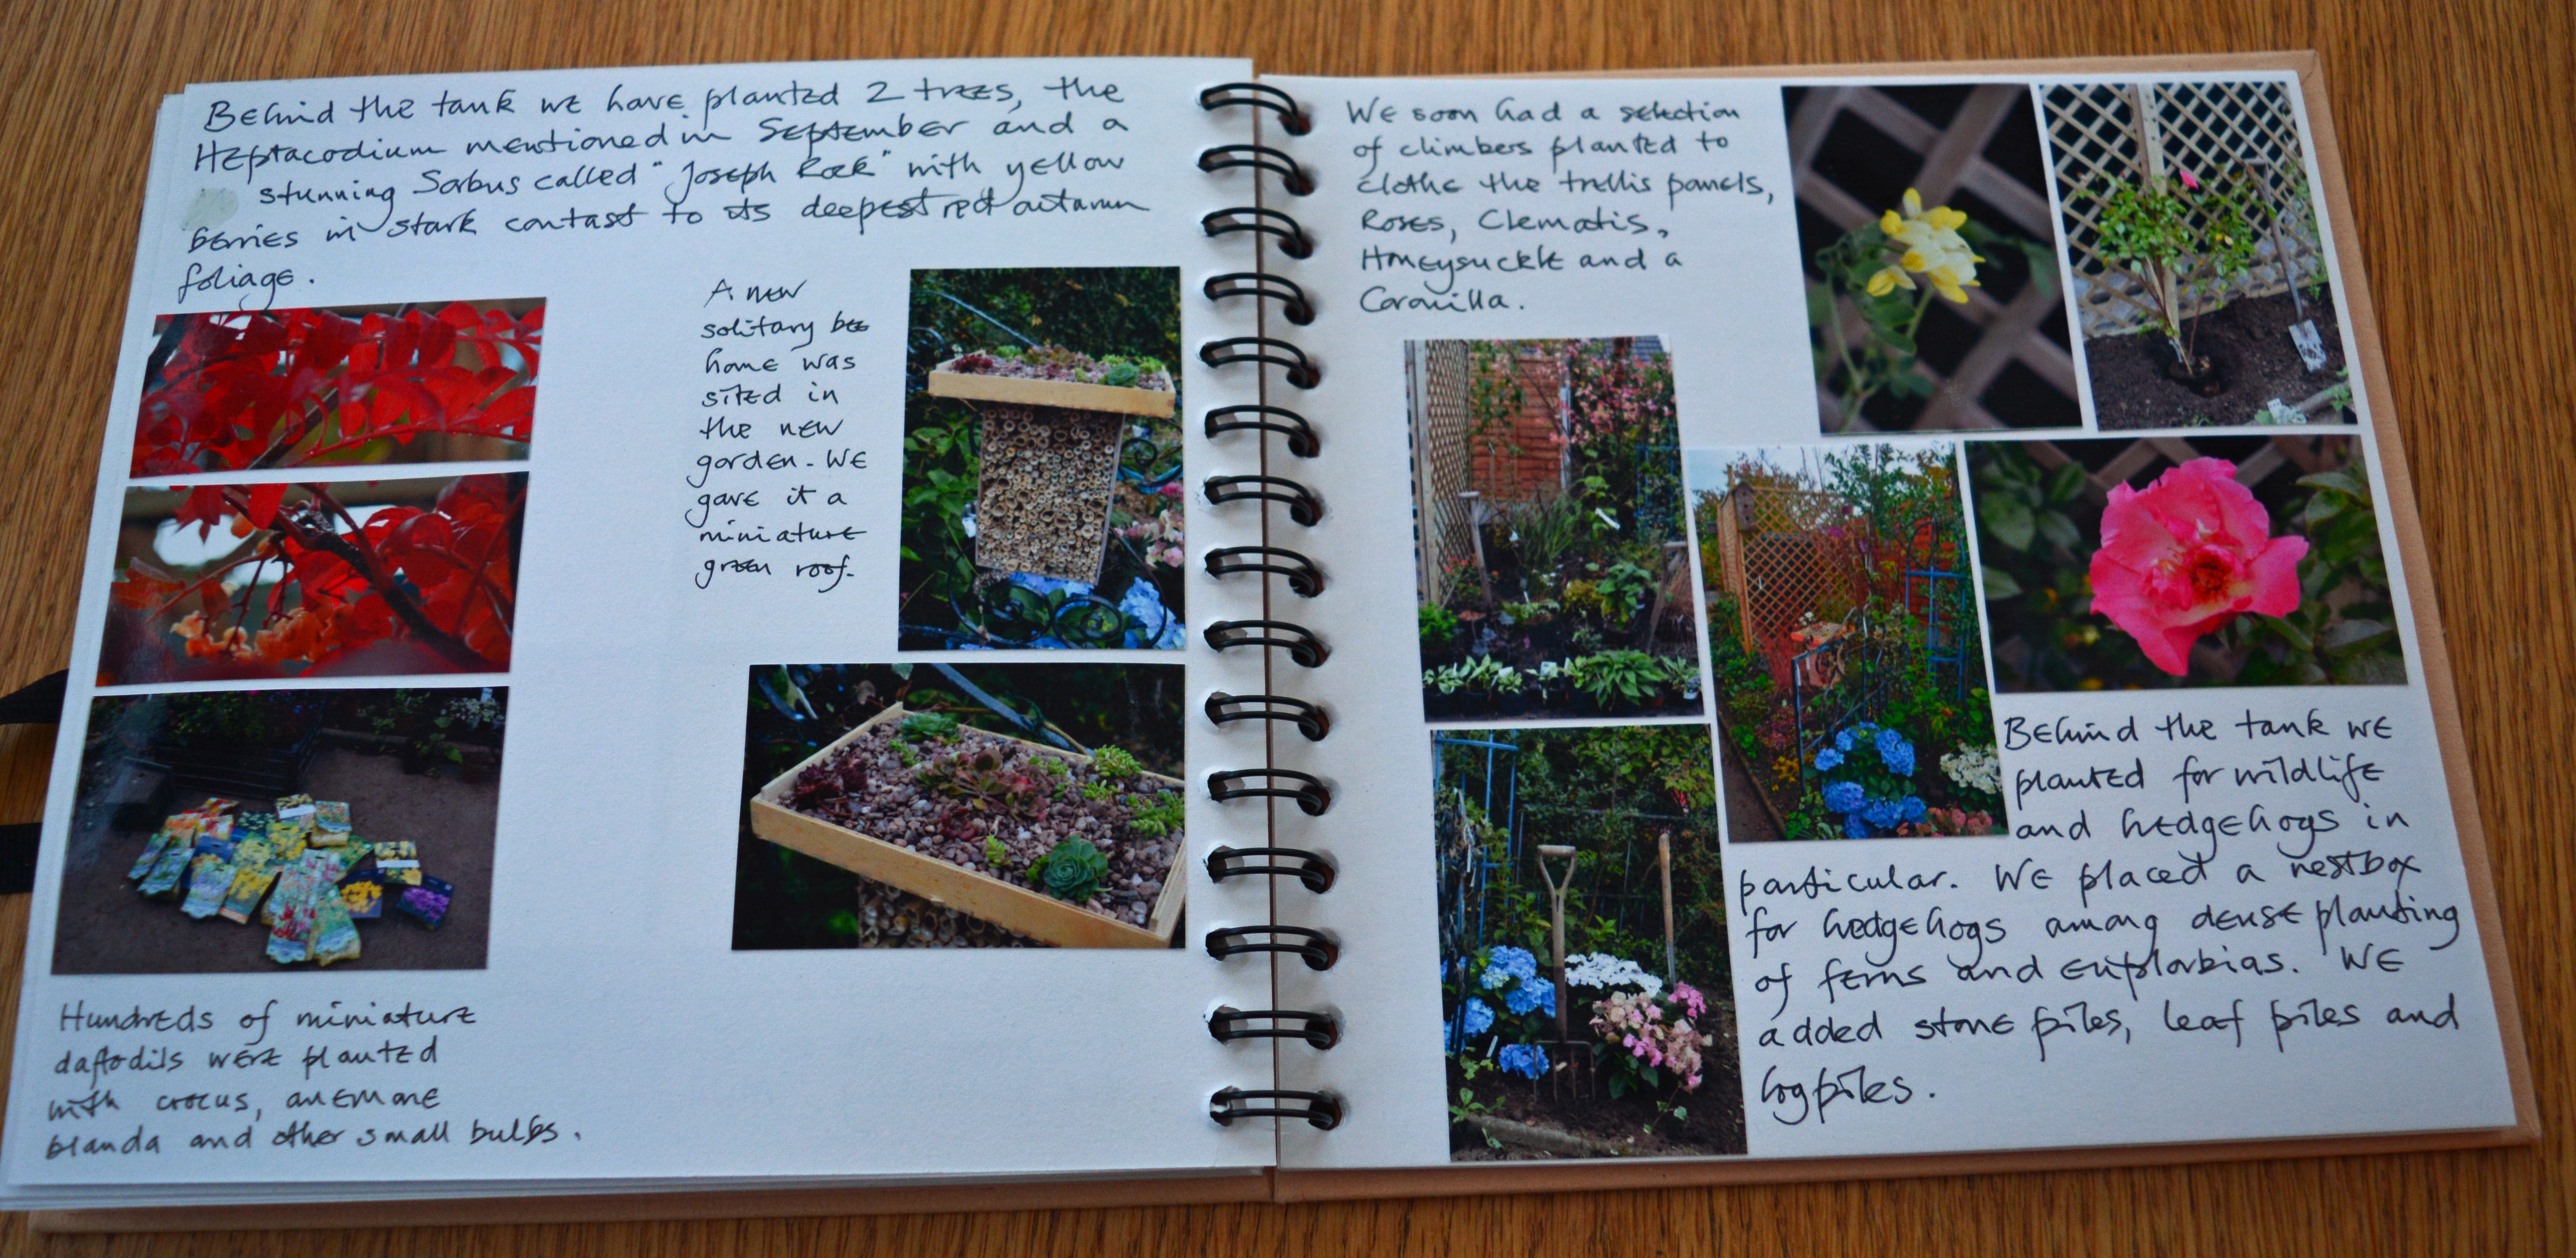 Behind the tank we have planted 2 trees, the
Heptacodium mentioned in September and a
stunning Sorbus called "Joseph Rock" with yellow
berries in stark contast to its deepest red autumn
foliage.
A new
solitary bee
home was
sited in
the new
garden. We
gave it a
miniature
green roof.
Hundreds of miniature
daffodils were planted
with crocus, anemone
blanda and other small bulbs.
We soon had a selection
of climbers planted to
clothe the trellis panels,
Roses, Clematis,
Honeysuckle and a
Coronilla.
Behind the tank we
planted for wildlife
and hedgehogs in
particular. We placed a nestbox
for hedgehogs among dense planting
of ferns and euphorbias. We
added stone piles, leaf piles and
log piles.